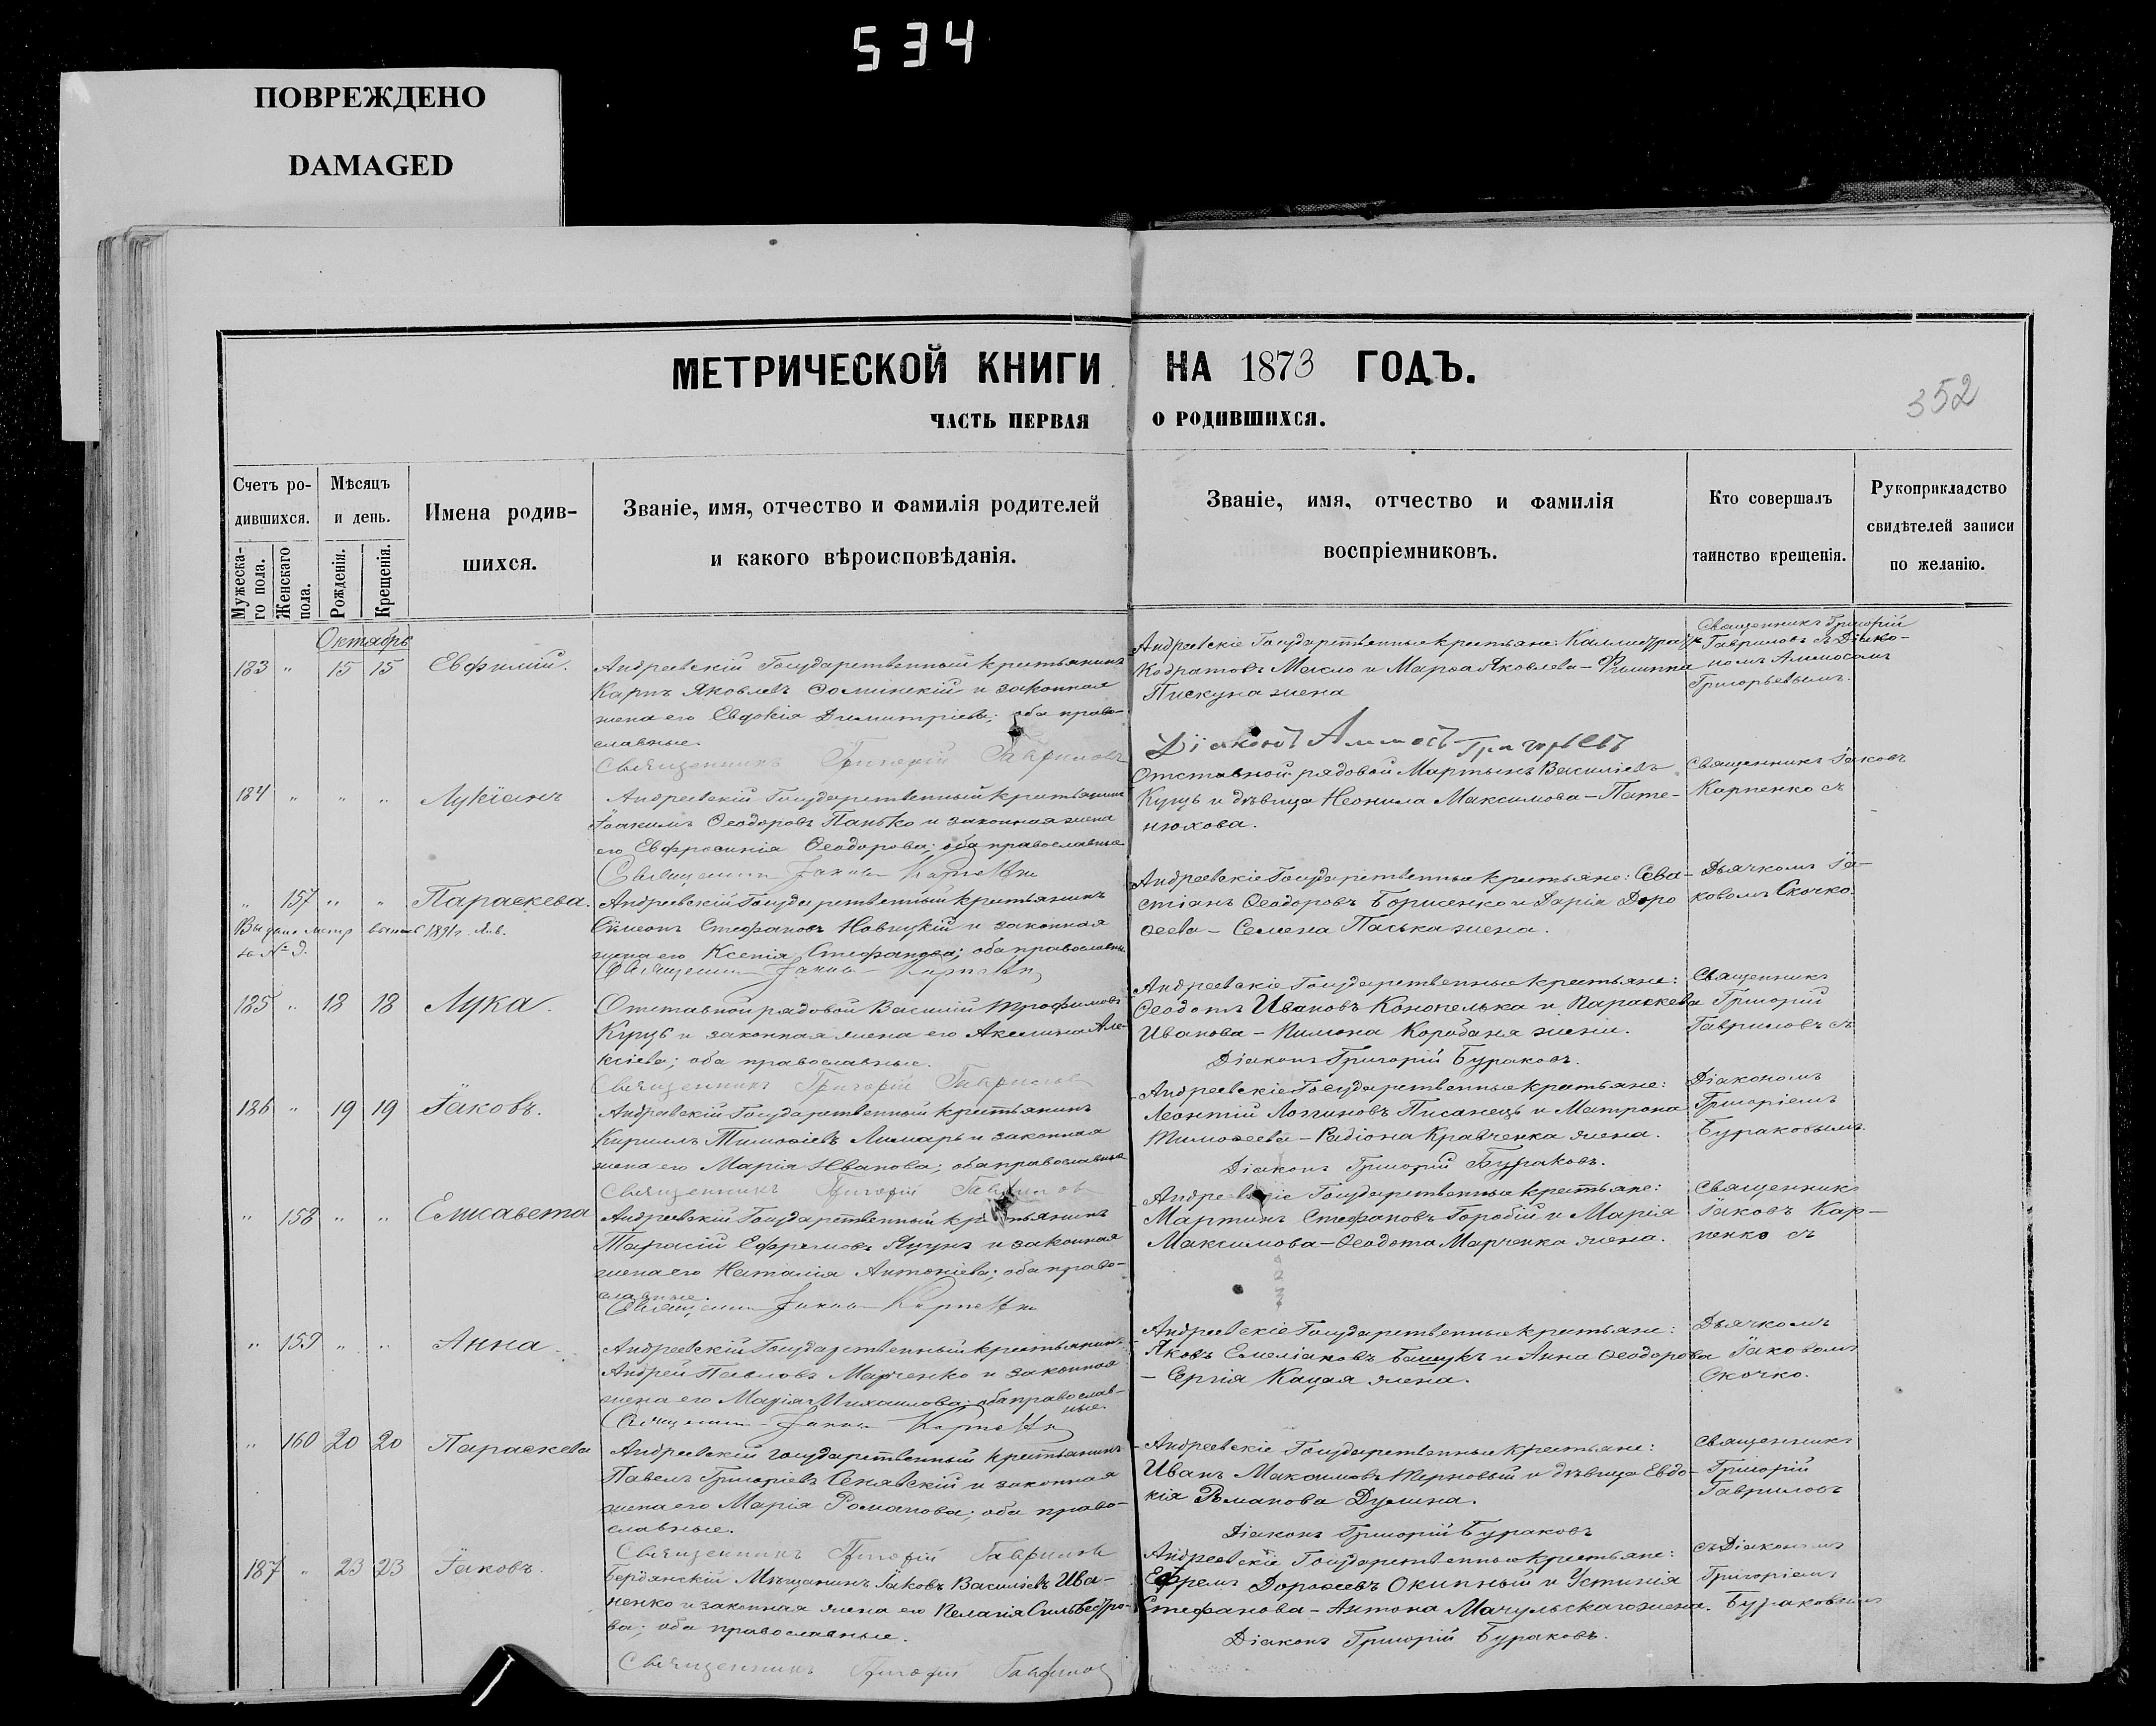 534
ПОВРЕЖДЕНО
DAMAGED
МЕТРИЧЕСКОЙ КНИГИ НА 1873 ГОДЪ.
352
ЧАСТЬ ПЕРВАЯ О РОДИВШИХСЯ.
Счетъ ро-
дившихся.
Мужеска-
го пола.
Женскаго
пола.
Мѣсяцъ
и день.
Рожденія.
Крещенія.
Имена родив-
шихся.
Званіе, имя, отчество и фамилія родителей
и какого вѣроисповѣданія.
Званіе, имя, отчество и фамилія
воспріемниковъ.
Кто совершалъ
таинство крещенія.
Рукоприкладство
свидѣтелей записи
по желанію.
Октябрь
183 " 15 15 Евфимій.
Андреевскій Государственный крестьянинъ
Карпъ Яковлевъ Ѳоминскій и законная
жена его Евдокія Димитріева; оба право-
славные.
Священникъ Григорій Гавриловъ
Андреевскіе Государственные крестьяне: Каллистратъ
Кодратовъ Масло и Марѳа Яковлева - Филиппа
Пискуна жена
Діаконъ Аммосъ Григорьевъ
Священникъ Григорій
Гавриловъ съ Діако-
номъ Аммосомъ
Григорьевымъ.
184 " " " Лукіанъ
Андреевскій Государственный крестьянинъ
Іоакимъ Ѳеодоровъ Панько и законная жена
его Евфросинія Ѳеодорова; оба православные
Священникъ Іаковъ Карпенко
Отставной рядовой Мартынъ Василіевъ
Куцъ и дѣвица Неонила Максимова - Пате-
нюхова.
Священникъ Іаковъ
Карпенко съ
" 157 " " Параскева.
Выдано метр 1891г. Янв.
за №
Андреевскій Государственный крестьянинъ
Сѵмеонъ Стефановъ Новицкій и законная
жена его Ксенія Стефанова; оба православные
Священникъ Іаковъ Карпенко
Андреевскіе Государственные крестьяне: Сева-
стіанъ Ѳеодоровъ Борисенко и Дарія Доро
ѳеева - Семена Паська жена.
Дьячкомъ Іа-
ковомъ Скочко.
185 " 18 18 Лука.
Отставной рядовой Василій Трофимовъ
Куцъ и законная жена его Акилина Але-
ксіева; оба православные.
Священникъ Григорій Гавриловъ
Андреевскіе Государственные крестьяне:
Ѳеодотъ Ивановъ Конопелька и Параскева
Иванова - Пимона Коробана жена.
Діаконъ Григорій Бураковъ.
Священникъ
Григорій
Гавриловъ съ
186 " 19 19 Іаковъ.
Андреевскій Государственный крестьянинъ
Кириллъ Тимоѳіевъ Лимарь и законная
жена его Марія Иванова; оба православные
Священникъ Григорій Гавриловъ
Андреевскіе Государственные крестьяне:
Леонтій Логгиновъ Писанецъ и Матрона
Тимоѳеева - Радіона Кравченка жена.
Діаконъ Григорій Бураковъ.
Діакономъ
Григоріемъ
Бураковымъ.
" 158 " " Елисавета
Андреевскій Государственный крестьянинъ
Тарасій Ефремовъ Яцунъ и законная
жена его Наталія Антоніева; оба право-
славные.
Священникъ Іаковъ Карпенко
Андреевскіе Государственные крестьяне:
Мартинъ Стефановъ Горобій и Марія
Максимова - Ѳеодота Марченка жена.
Священникъ
Іаковъ Кар-
пенко съ
" 159 " " Анна.
Андреевскій Государственный крестьянинъ
Андрей Павловъ Марченко и законная
жена его Марія Михаилова; оба православ-
ные.
Священникъ Іаковъ Карпенко
Андреевскіе Государственные крестьяне:
Яковъ Емеліановъ Башукъ и Анна Ѳеодорова
- Сергія Кацая жена.
Дьячкомъ
Іаковомъ
Скочко.
" 160 20 20 Параскева
Андреевскій государственный крестьянинъ
Павелъ Григоріевъ Сенявскій и законная
жена его Марія Романова; оба право-
славные.
Священникъ Григорій Гавриловъ
Андреевскіе Государственные крестьяне:
Иванъ Максимовъ Терновый и дѣвица Евдо-
кія Романова Думина.
Діаконъ Григорій Бураковъ
Священникъ
Григорій
Гавриловъ
187 " 23 23 Іаковъ.
Бердянскій Мѣщанинъ Іаковъ Василіевъ Ива-
ненко и законная жена его Пелагія Сильвестро-
ва; оба православные.
Священникъ Григорій Гавриловъ
Андреевскіе Государственные крестьяне:
Ефремъ Дороѳеевъ Окипный и Устинія
Стефанова - Антона Мачульскаго жена.
Діаконъ Григорій Бураковъ.
съ Діакономъ
Григоріемъ
Бураковымъ